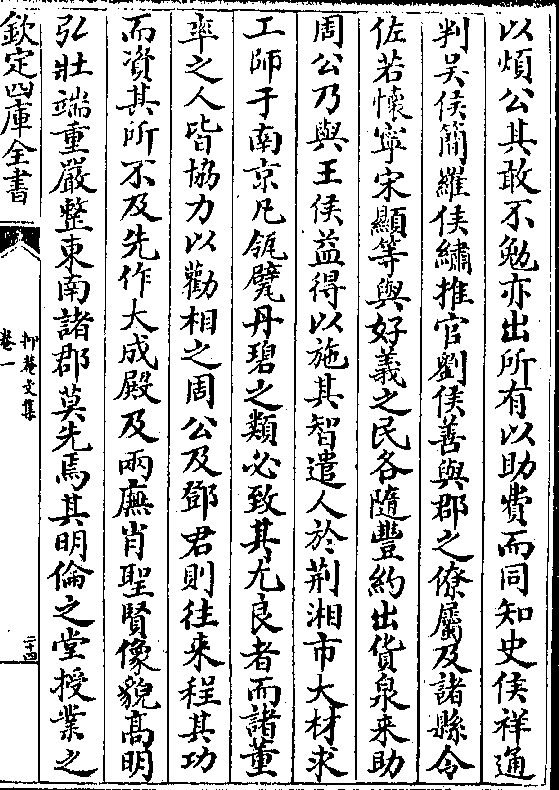 以煩公其敢不勉亦出所有以助費而同知史侯祥通
判吴侯簡羅侯繡推官劉侯善與郡之僚屬及諸縣令
佐若懷寧宋顯等與好義之民各隨豐約出貨泉来助
周公乃與王侯益得以施其智遣人於荆湘市大材求
工師于南京凡瓴甓丹碧之類必致其尤良者而諸董
率之人皆協力以勸相之周公及鄧君則往来程其功
而資其所不及先作大成殿及兩廡肖聖賢像貌髙明
弘壯端重嚴整東南諸郡莫先焉其明倫之堂授業之
欽定四庫全書
抑菴文集
卷一
二十四